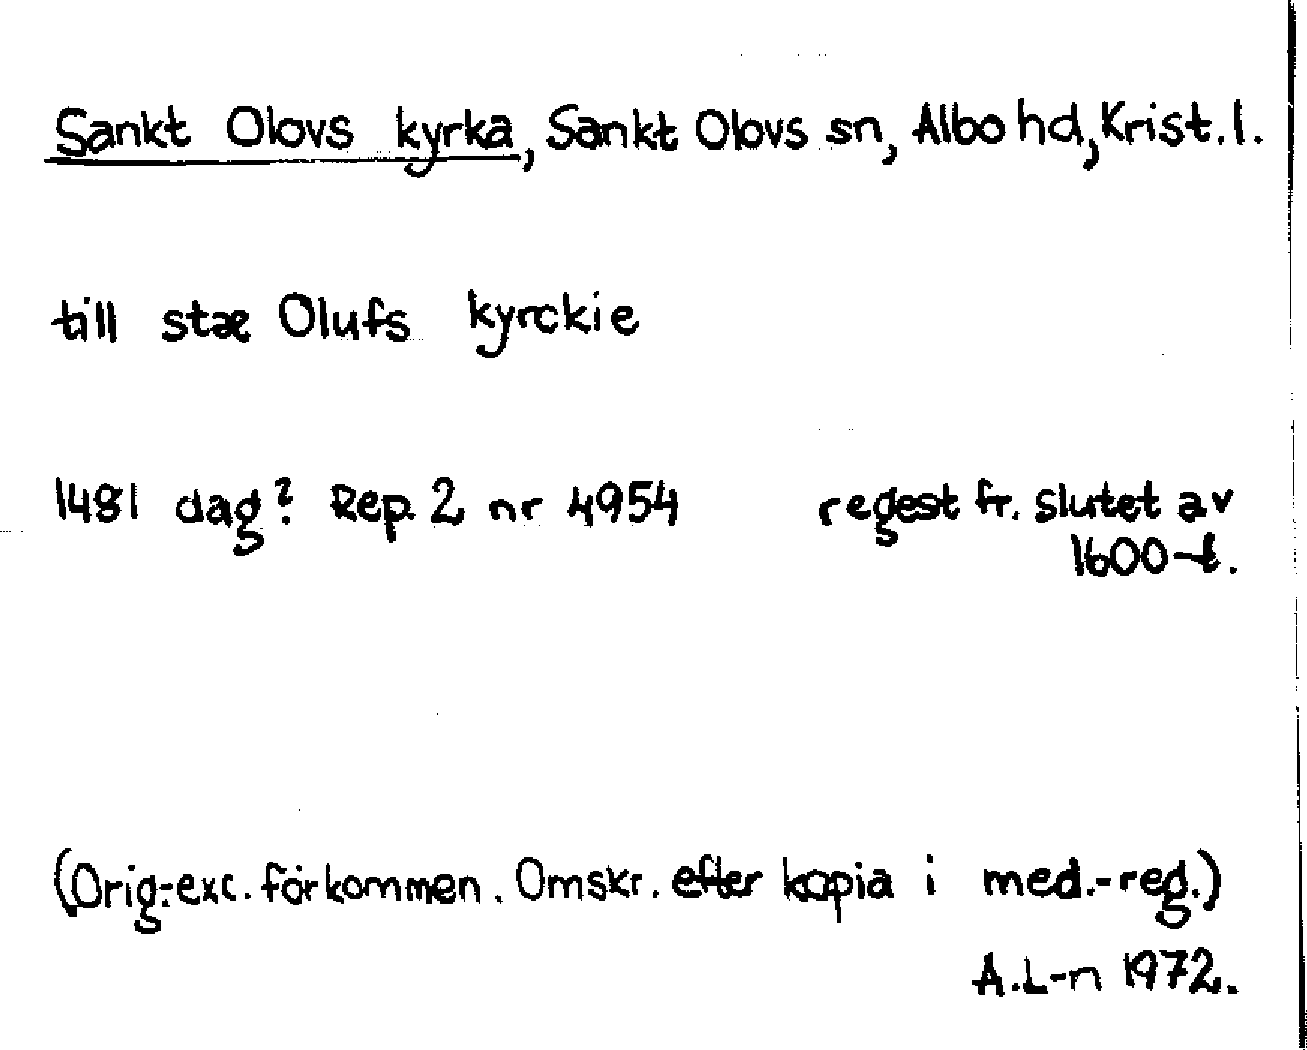 Sankt Olovs kyrka, Sankt Olovs sn, Albo hd, Krist. l.
till stæ Olufs kyrckie
1481 dag? Rep. 2 nr 4954 regest fr. slutet av
1600-t.
(Orig.-exc. förkommen. Omskr. efter kopia i med.-reg.)
A.L-n 1972.